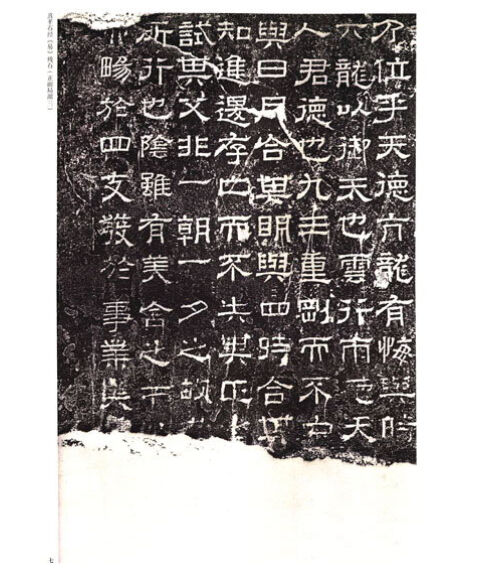 乃位乎天德亢龍有悔與時
六龍以御天也雲行雨天
人君德也九三重剛而不中
與日月合其明與四時合其
知進退存亡而不失其正
試其父非一朝一夕之故
所行也陰雖有美含之
暢於四支發於事業美
熹平石经《易》残石（正面局部三）
七